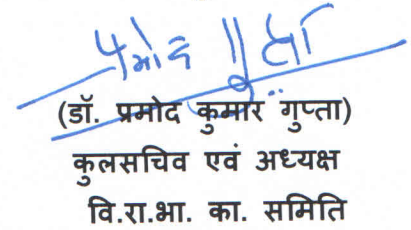 प्रमोद गुप्ता
(डॉ. प्रमोद कुमार गुप्ता)
कुलसचिव एवं अध्यक्ष
वि.रा.भा. का. समिति